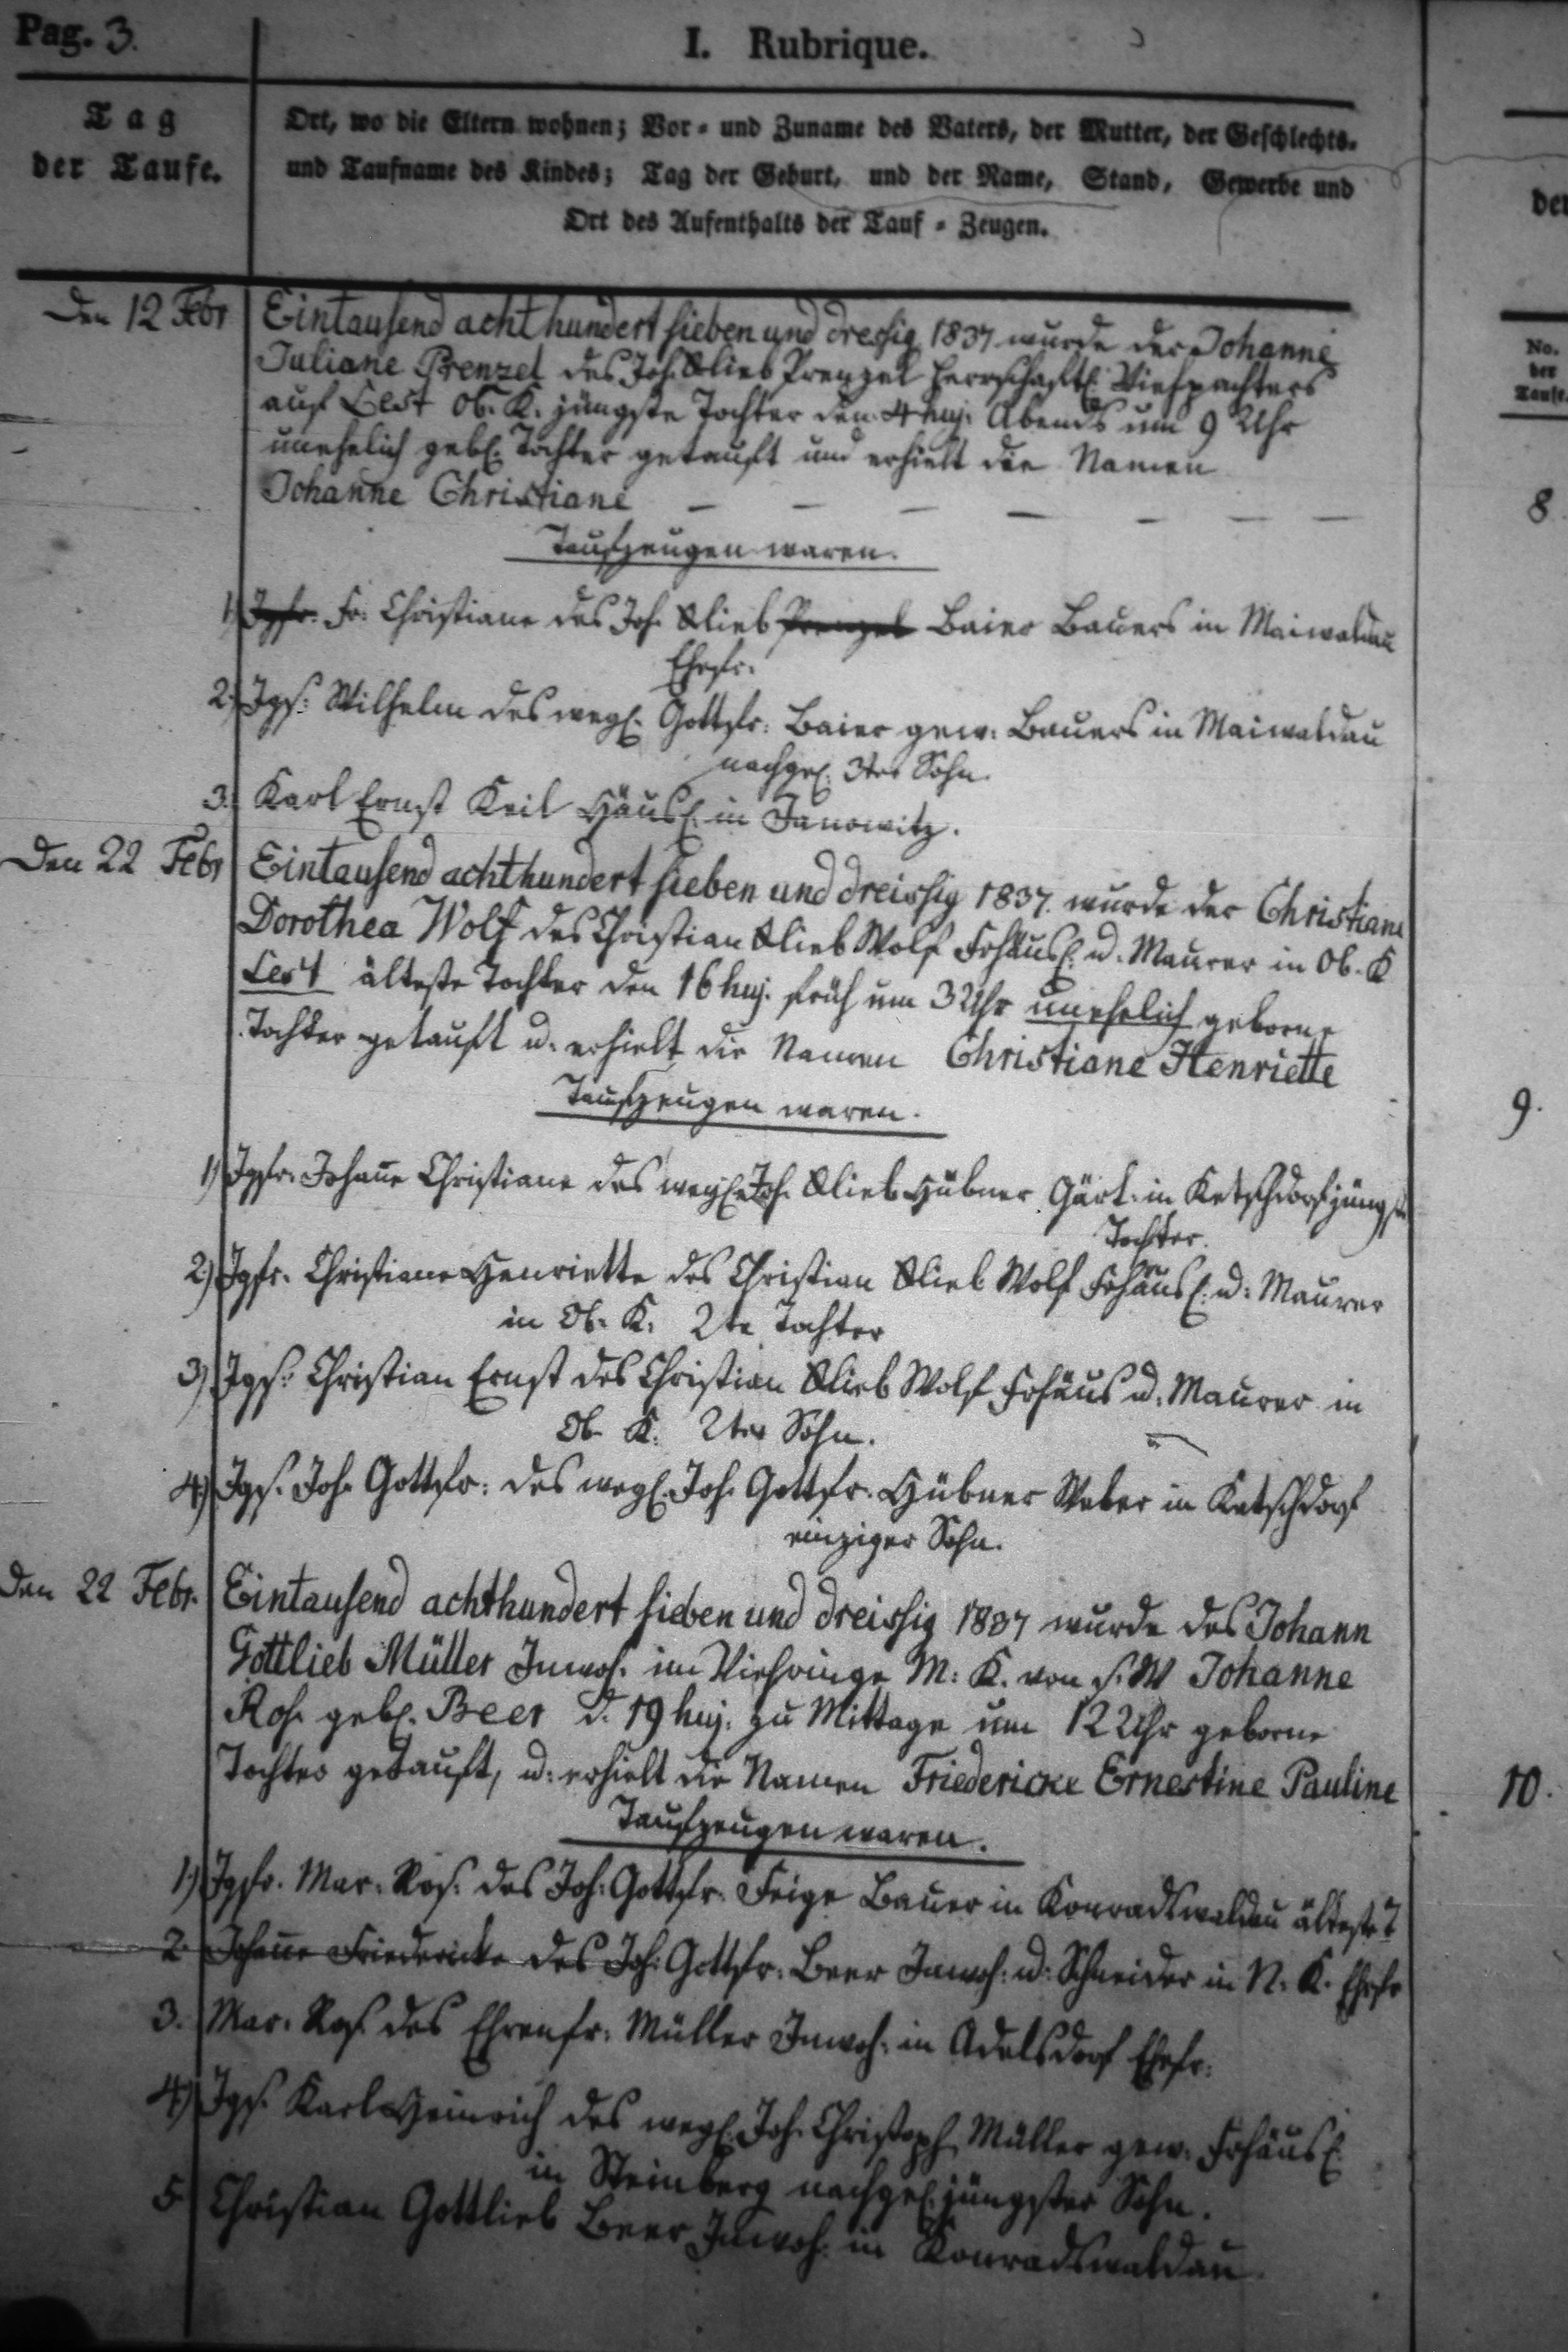 Pag. 3.
I. Rubrique.
Tag
der Taufe.
Ort, wo die Eltern wohnen; Vor- und Zuname des Vaters, der Mutter, der Geschlechts-
und Taufname des Kindes; Tag der Geburt, und der Name, Stand, Gewerbe und
Ort des Aufenthalts der Tauf-Zeugen.
No.
der
Taufe.
Den 12 Febr
Eintausend achthundert sieben und dressig 1837 wurde der Johanne
Juliane Prenzel des Joh. Glieb Prenzel herrschaftl. Viehpachters
auf Lest Ob. K. jüngste Tochter den 4 huj. Abends um 9 Uhr
unehelich gebl. Tochter getauft und erhielt die Namen
Johanne Christiane
8
Taufzeugen waren.
1) Jgfr. Fr. Christiane des Joh. Glieb Prenzel Baier Bauers in Maiwaldau
Ehefr.
2. Jgs. Wilhelm des wegl. Gottfr. Baier gew. Bauers in Maiwaldau
nachgel. 3ter Sohn.
3. Karl Ernst Keil Häusl. in Janowitz.
Den 22 Febr
Eintausend achthundert sieben und dreissig 1837. wurde der Christiane
Dorothea Wolf des Christian Glieb Wolf Frhäusl. u. Maurer in Ob. K
Lest älteste Tochter den 16 huj. früh um 3 Uhr unehelich geborne
Tochter getauft u. erhielt die Namen Christiane Henriette
9.
Taufzeugen waren.
1) Jgfr. Johañe Christiane des wegl. Joh. Glieb Hübner Gärt. in Ketschdorf jüngste
Tochter.
2) Jgfr. Christiane Henriette des Christian Glieb Wolf Frhäusl. u. Maurer
in Ob. K. 2te Tochter
3) Jgs. Christian Ernst des Christian Glieb Wolf Frhäus u. Maurer in
Ob. K. 2ter Sohn.
4) Jgs. Joh. Gottfr. des wegl. Joh. Gottfr. Hübner Weber in Ketschdorf
einziger Sohn.
Den 22 Febr.
Eintausend achthundert sieben und dreissig 1837 wurde des Johann
Gottlieb Müller Inwoh. im Viehringe M. K. von s. W Johanne
Ros. gebl. Beer d. 19 huj. zu Mittage um 12 Uhr geborne
Tochter getauft, u. erhielt die Namen Friedericke Ernestine Pauline
10.
Taufzeugen waren.
1.) Jgfr. Mar. Ros. des Joh. Gottfr. Feige Bauer in Konradswaldau älteste T
2. Johañe Friedericke des Joh. Gottfr. Beer Inwoh. u. Schneider in N. K. Ehefr
3. Mar. Ros. des Ehrenfr. Müller Inwoh. in Adelsdorf Ehefr.
4) Jgs. Karl Heinrich des wegl. Joh. Christoph Müller gew. Frhäusl.
in Steinberg nachgel. jüngster Sohn.
5 Christian Gottlieb Beer Inwoh. in Konradswaldau